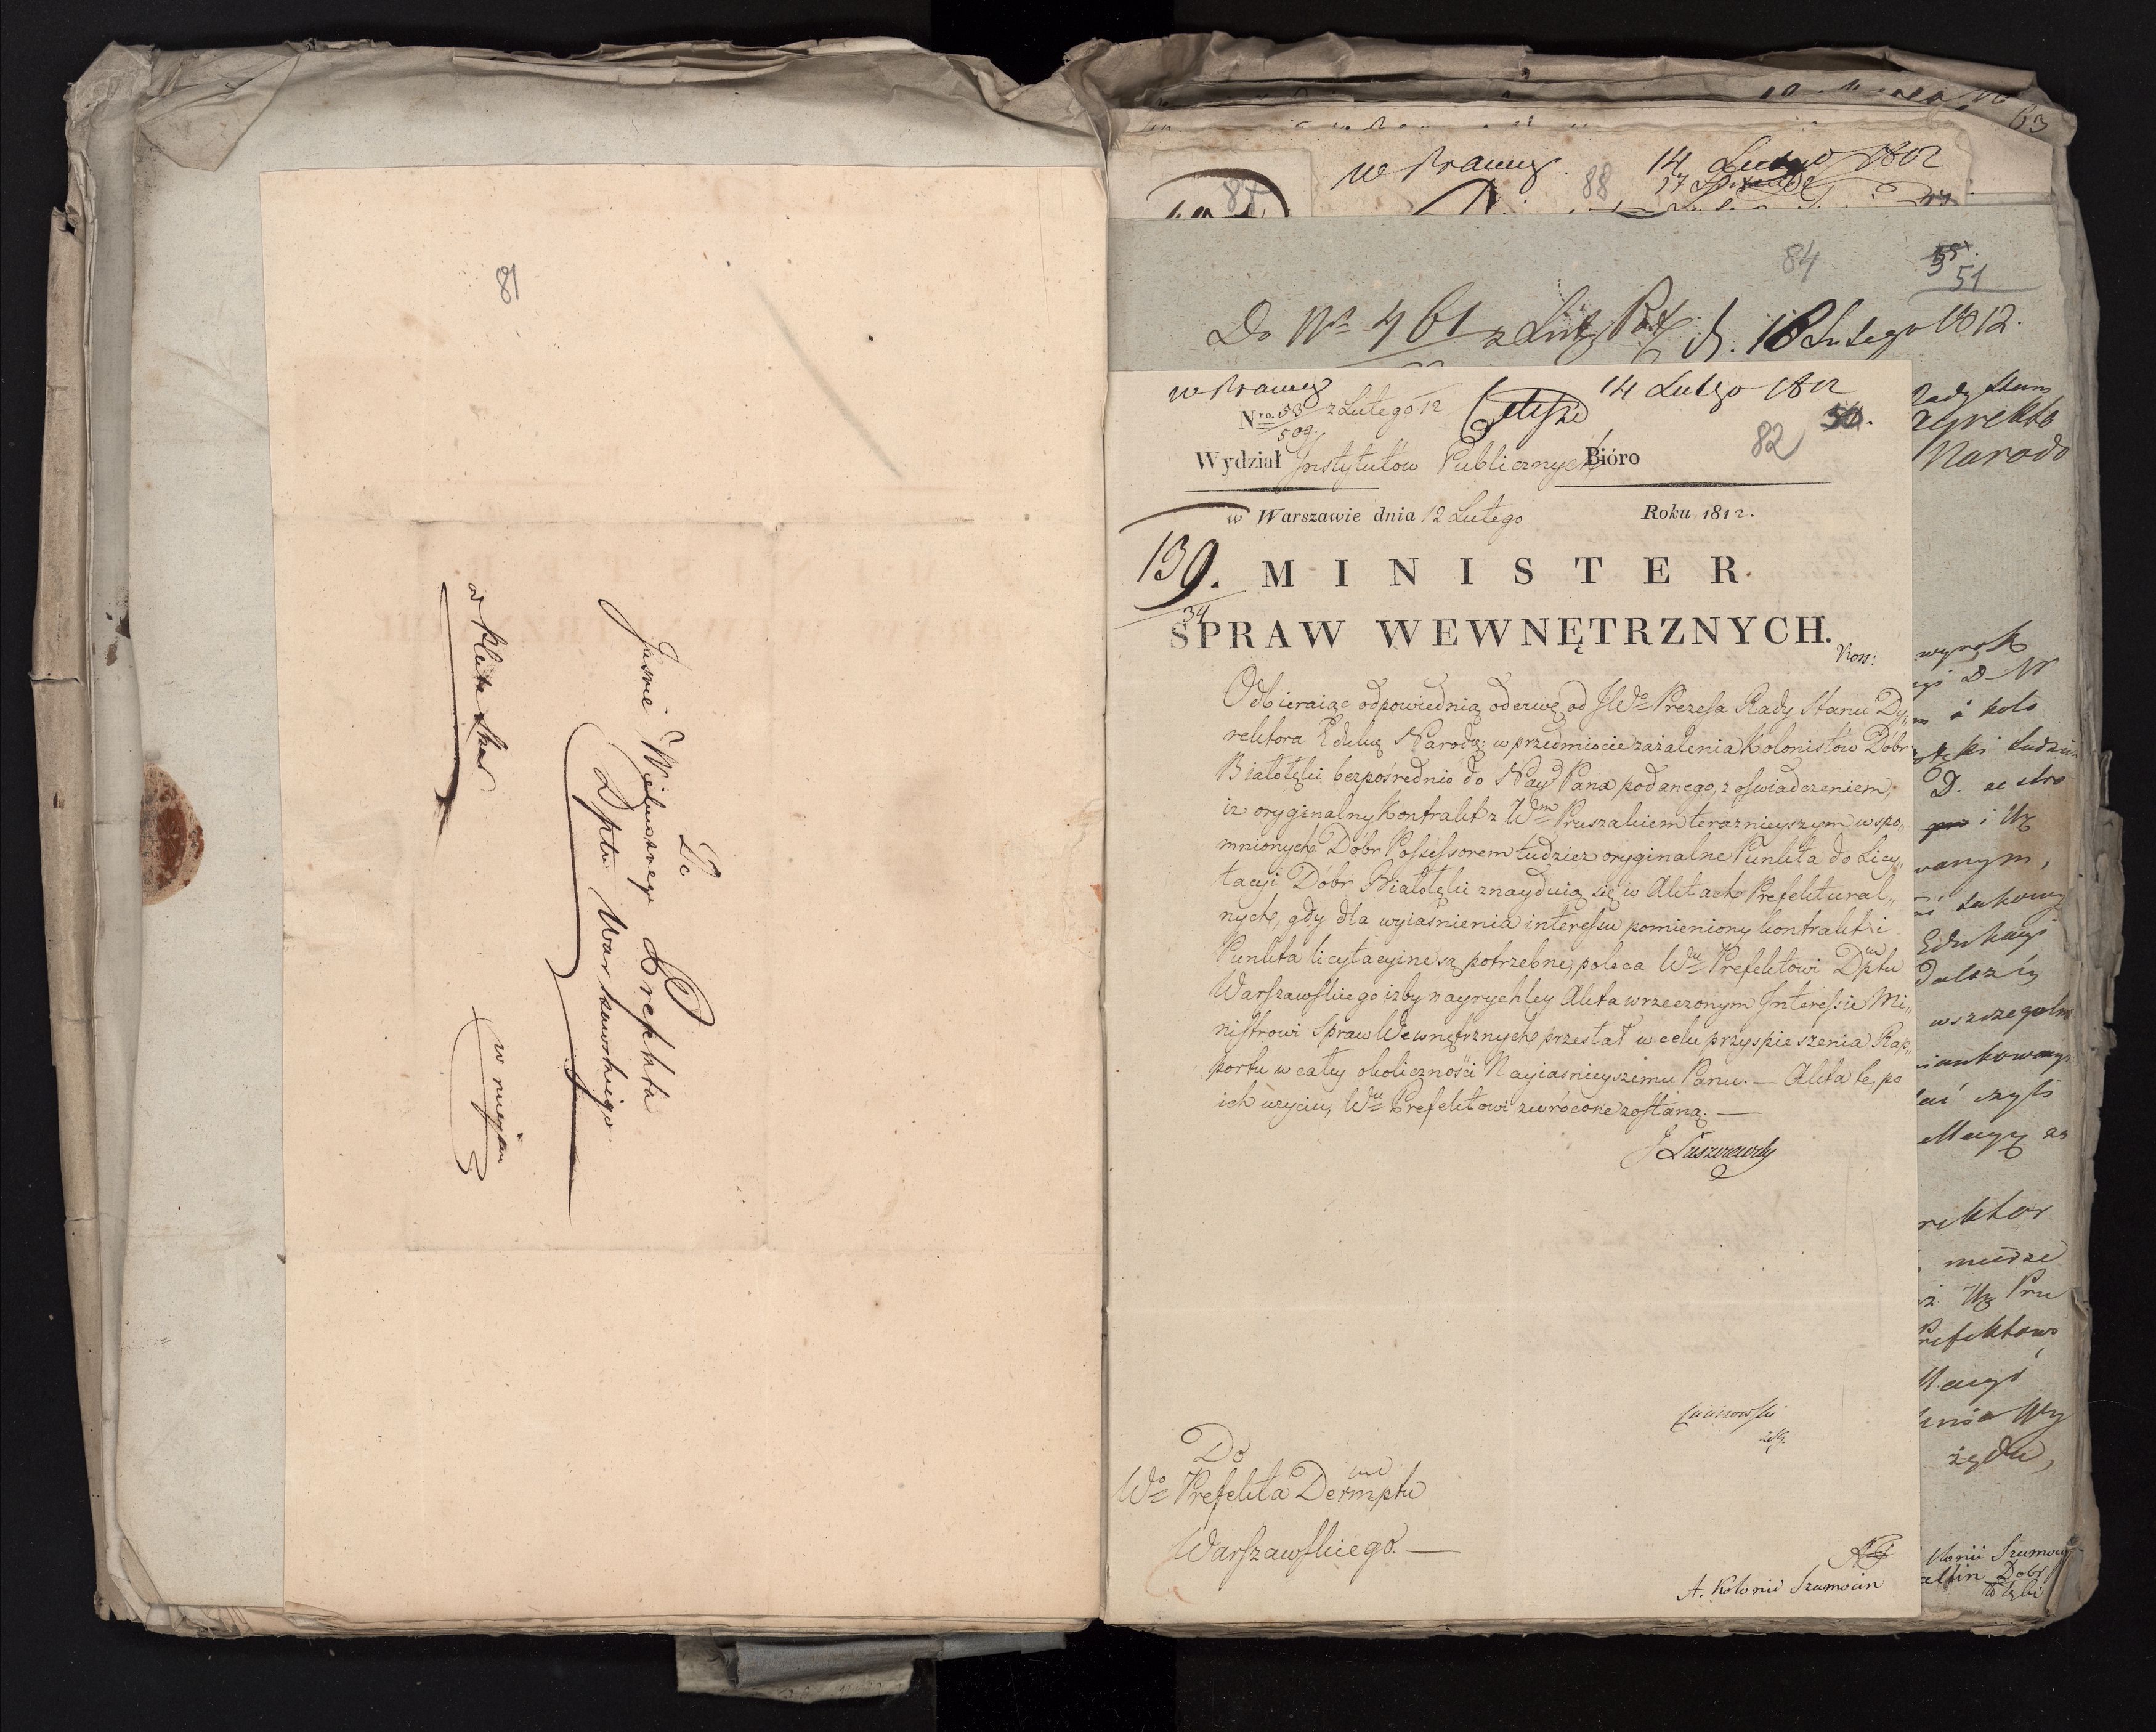 81
Do
Jaśnie Wielmożnego Prefekta
Dptu Warszawskiego
w mieyscu
63
w Pracuy. 14 Lutego 1812
88
84
51
Do Nro 461 z Lutg d. 18 Lutego 1812.
w Pracuy 14 Lutego 1812
Nro. 53/509. z Lutego 12
82 50.
Wydział Instytutów Publicznych Bióro
w Warszawie dnia 12 Lutego Roku 1812.
139.
34
MINISTER
SPRAW WEWNĘTRZNYCH.
Odbieraiąc odpowiednią odezwę od JWo Prezesa Rady Stanu Dy„
rektora Edukcy Narodo: w przedmiocie zażalenia Kolonistów Dóbr
Białołęki bezpośrednio do Nayo Pana podanego, z oświadczeniem,
iz oryginalny Kontrakt z Wm Pruszakiem teraznieyszym wspo„
mnionych Dóbr Possessorem tudzież oryginalne Punkta do Licy„
tacyi Dóbr Białołęki znayduią się w Aktach Prefektural„
nych, gdy dla wyiaśnienia interessu pomieniony kontrakt i
Punkta licytacyine są potrzebne, poleca Wu Prefektowi Dptu
Warszawskiego izby nayrychley Akta w rzeczonym Interessie Mi„
nistrowi Spraw Wewnętrznych przesłał w celu przyspieszenia Rap„
portu w całey okoliczności Nayiasnieyszemu Panu. — Akta te, po
ich użyciu, Wu Prefektowi zwrócone zostaną. —
J Łuszczewski
Do
Wo Prefekta Dermptu
Warszawskiego. —
A. Kolonii Szamocin
Narodo
wyrok
i kolo
wanym,
Edukacyi
w szczegoln
rektor
Prefektowi